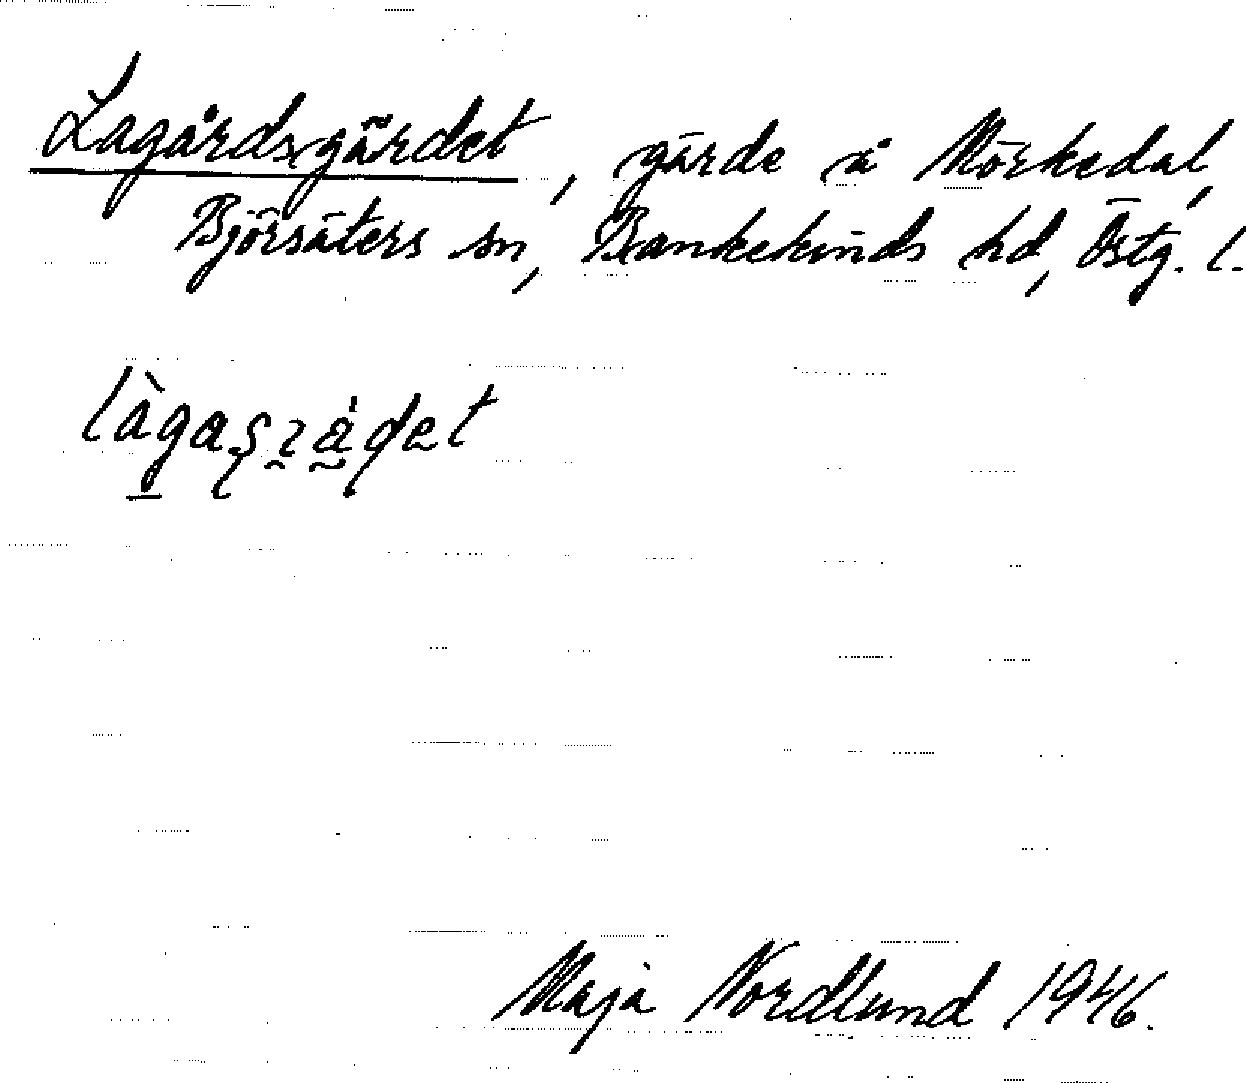 Lagårdsgärdet, gärde å Mörkedal,
Björsäters sn, Bankekinds hd, Östg. l.
Maja Nordlund 1946.